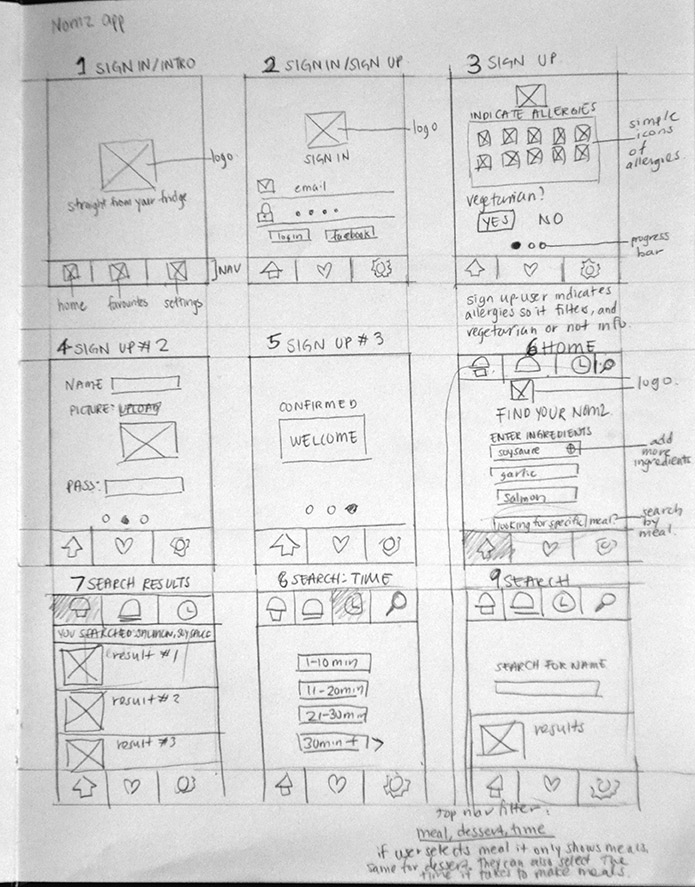 Nomz app
1 SIGN IN/INTRO
logo
straight from your fridge
NAV
home
favourites
settings
2 SIGN IN/SIGN UP
logo
SIGN IN
email
login
facebook
3 SIGN UP
INDICATE ALLERGIES
simple
icons
of
allergies
vegetarian?
YES NO
progress
bar
sign up-user indicates
allergies so it filters, and
vegetarian or not info.
4 SIGN UP #2
NAME
PICTURE: UPLOAD
PASS:
5 SIGN UP #3
CONFIRMED
WELCOME
6 HOME
logo.
FIND YOUR NOMZ.
ENTER INGREDIENTS
soysauce
add
more
ingredients
garlic
salmon
looking for specific meal?
search
by
meal.
7 SEARCH RESULTS
YOU SEARCHED: SALMON, SOYSAUCE
result #1
result #2
result #3
8 SEARCH: TIME
1-10 min
11-20min
21-30min
30min + >
9 SEARCH
SEARCH FOR NAME
results
top nav filter:
meal, dessert, time
if user selects meal it only shows meals,
same for dessert. They can also select the
time it takes to make meals.